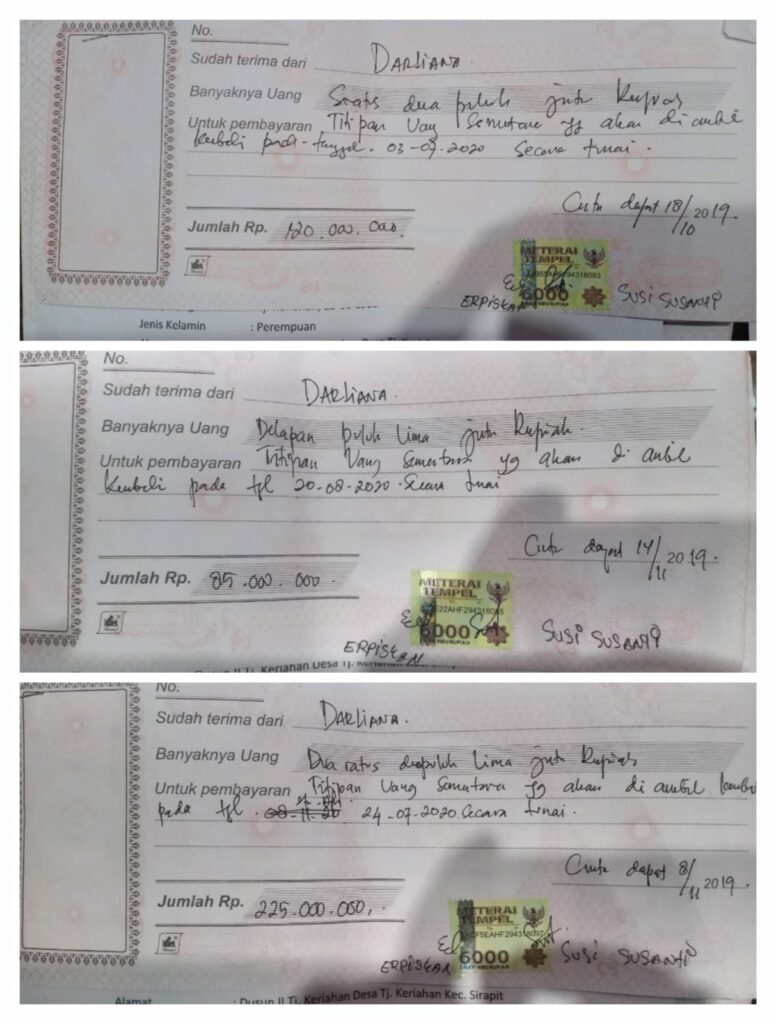 No.
Sudah terima dari DARLIANA.
Banyaknya Uang Sratus dua puluh juta Rupiah
Untuk pembayaran Titipan Uang Sementara yg akan di ambil
kembali pada tanggal. 03-07-2020 secara tunai.
Cinta dapat 18/10 2019.
Jumlah Rp. 120.000.000.
METERAI
TEMPEL
6000
ENAM RIBU RUPIAH
ERPISKAN SUSI SUSANTI
Jenis Kelamin : Perempuan
No.
Sudah terima dari DARLIANA.
Banyaknya Uang Delapan puluh Lima juta Rupiah.
Untuk pembayaran Titipan Uang Sementara yg akan di ambil
kembali pada tgl 20-08-2020. Secara tunai
Cinta dapat 14/11 2019.
Jumlah Rp. 85.000.000
METERAI
TEMPEL
6000
ENAM RIBU RUPIAH
ERPISKAN SUSI SUSANTI
Dusun II Tj. Keriahan Desa Tj. Keriahan
No.
Sudah terima dari DARLIANA.
Banyaknya Uang Dua ratus dua puluh Lima juta Rupiah
Untuk pembayaran Titipan Uang Sementara yg akan di ambil kembali
pada tgl. 24-07-2020. Secara tunai.
Cinta dapat 8/11 2019.
Jumlah Rp. 225.000.000,.
METERAI
TEMPEL
6000
ENAM RIBU RUPIAH
ERPISKAN SUSI SUSANTI
Alamat : Dusun II Tj. Keriahan Desa Tj. Keriahan Kec. Sirapit